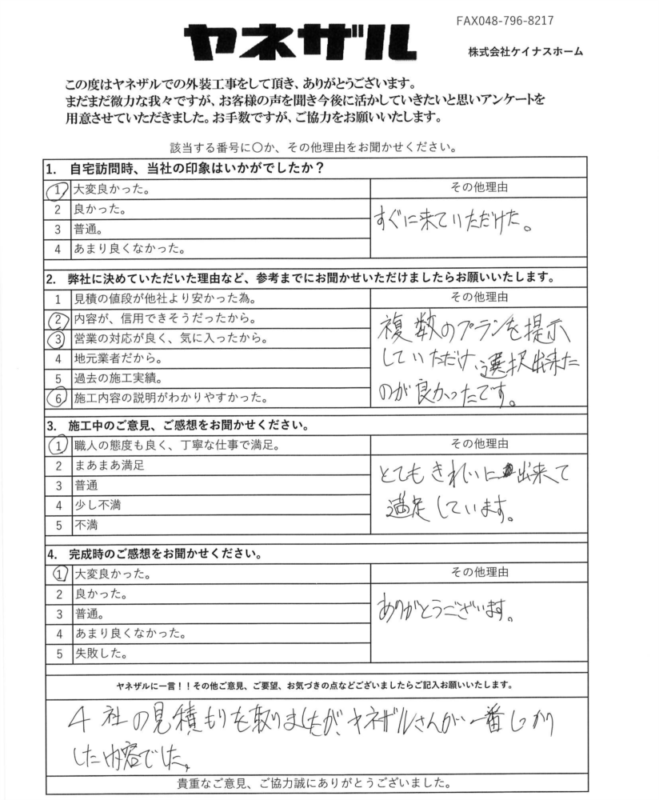 FAX048-796-8217
ヤネザル
株式会社ケイナスホーム
この度はヤネザルでの外装工事をして頂き、ありがとうございます。
まだまだ微力な我々ですが、お客様の声を聞き今後に活かしていきたいと思いアンケートを
用意させていただきました。お手数ですが、ご協力をお願いいたします。
該当する番号に〇か、その他理由をお聞かせください。
1. 自宅訪問時、当社の印象はいかがでしたか？
1 大変良かった。
その他理由
2 良かった。
3 普通。
4 あまり良くなかった。
すぐに来ていただけた。
2. 弊社に決めていただいた理由など、参考までにお聞かせいただけましたらお願いいたします。
1 見積の値段が他社より安かった為。
その他理由
2 内容が、信用できそうだったから。
3 営業の対応が良く、気に入ったから。
4 地元業者だから。
5 過去の施工実績。
6 施工内容の説明がわかりやすかった。
複数のプランを提示
していただけ、選択出来た
のが良かったです。
3. 施工中のご意見、ご感想をお聞かせください。
1 職人の態度も良く、丁寧な仕事で満足。
その他理由
2 まあまあ満足
3 普通
4 少し不満
5 不満
とてもきれいに出来て
満足しています。
4. 完成時のご感想をお聞かせください。
1 大変良かった。
その他理由
2 良かった。
3 普通。
4 あまり良くなかった。
5 失敗した。
ありがとうございます。
ヤネザルに一言！！その他ご意見、ご要望、お気づきの点などございましたらご記入お願いいたします。
4社の見積もりを取りましたが、ヤネザルさんが一番しっかり
した内容でした。
貴重なご意見、ご協力誠にありがとうございました。